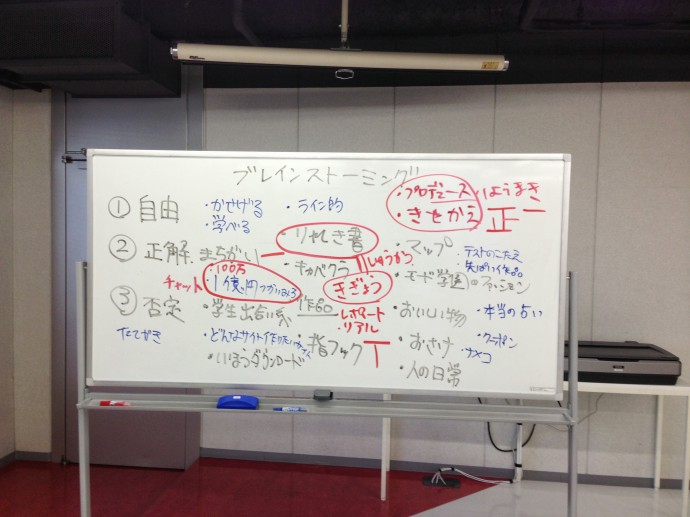 ブレインストーミング
① 自由
・かせげる
・学べる
・ライン的
・プロデュース
・きせかえ
はようまき
正一
② 正解、まちがい
・りれき書
・キャバクラ
しゅうかつ
きぎょう
・マップ
テストのこたえ
失ぱい作品
・モード学園のファッション
チャット
・100万
・1億円つかいみち
③ 否定
・学生出会い系
作品
レポート
・リアル
・おいしい物
・本当の占い
たてがき
・どんなサイト作りたい
・指フック
T
・おさけ
・クーポン
ナメコ
・いほうダウンロード
・人の日常